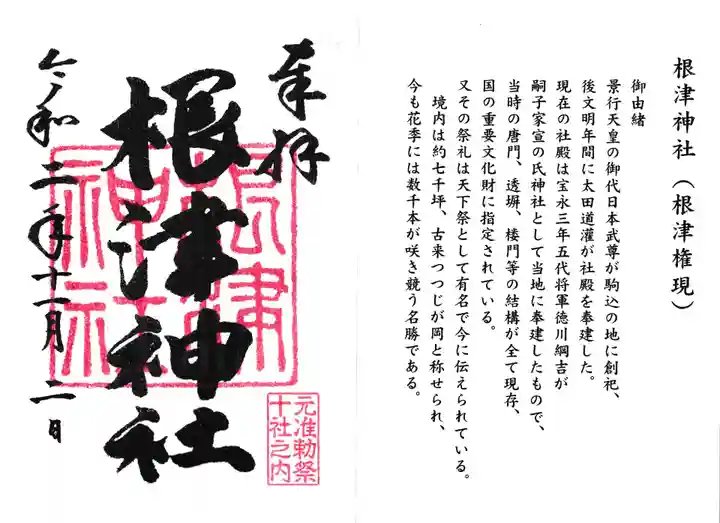 根津神社（根津権現）
御由緒
景行天皇の御代日本武尊が駒込の地に創祀、
後文明年間に太田道灌が社殿を奉建した。
現在の社殿は宝永三年五代将軍徳川綱吉が
嗣子家宣の氏神社として当地に奉建したもので、
当時の唐門、透塀、楼門等の結構が全て現存、
国の重要文化財に指定されている。
又その祭礼は天下祭として有名で今に伝えられている。
境内は約七千坪、古来つつじが岡と称せられ、
今も花季には数千本が咲き競う名勝である。
奉拝
根津神社
根津
神社
元准勅祭
十社之内
令和二年十一月二日